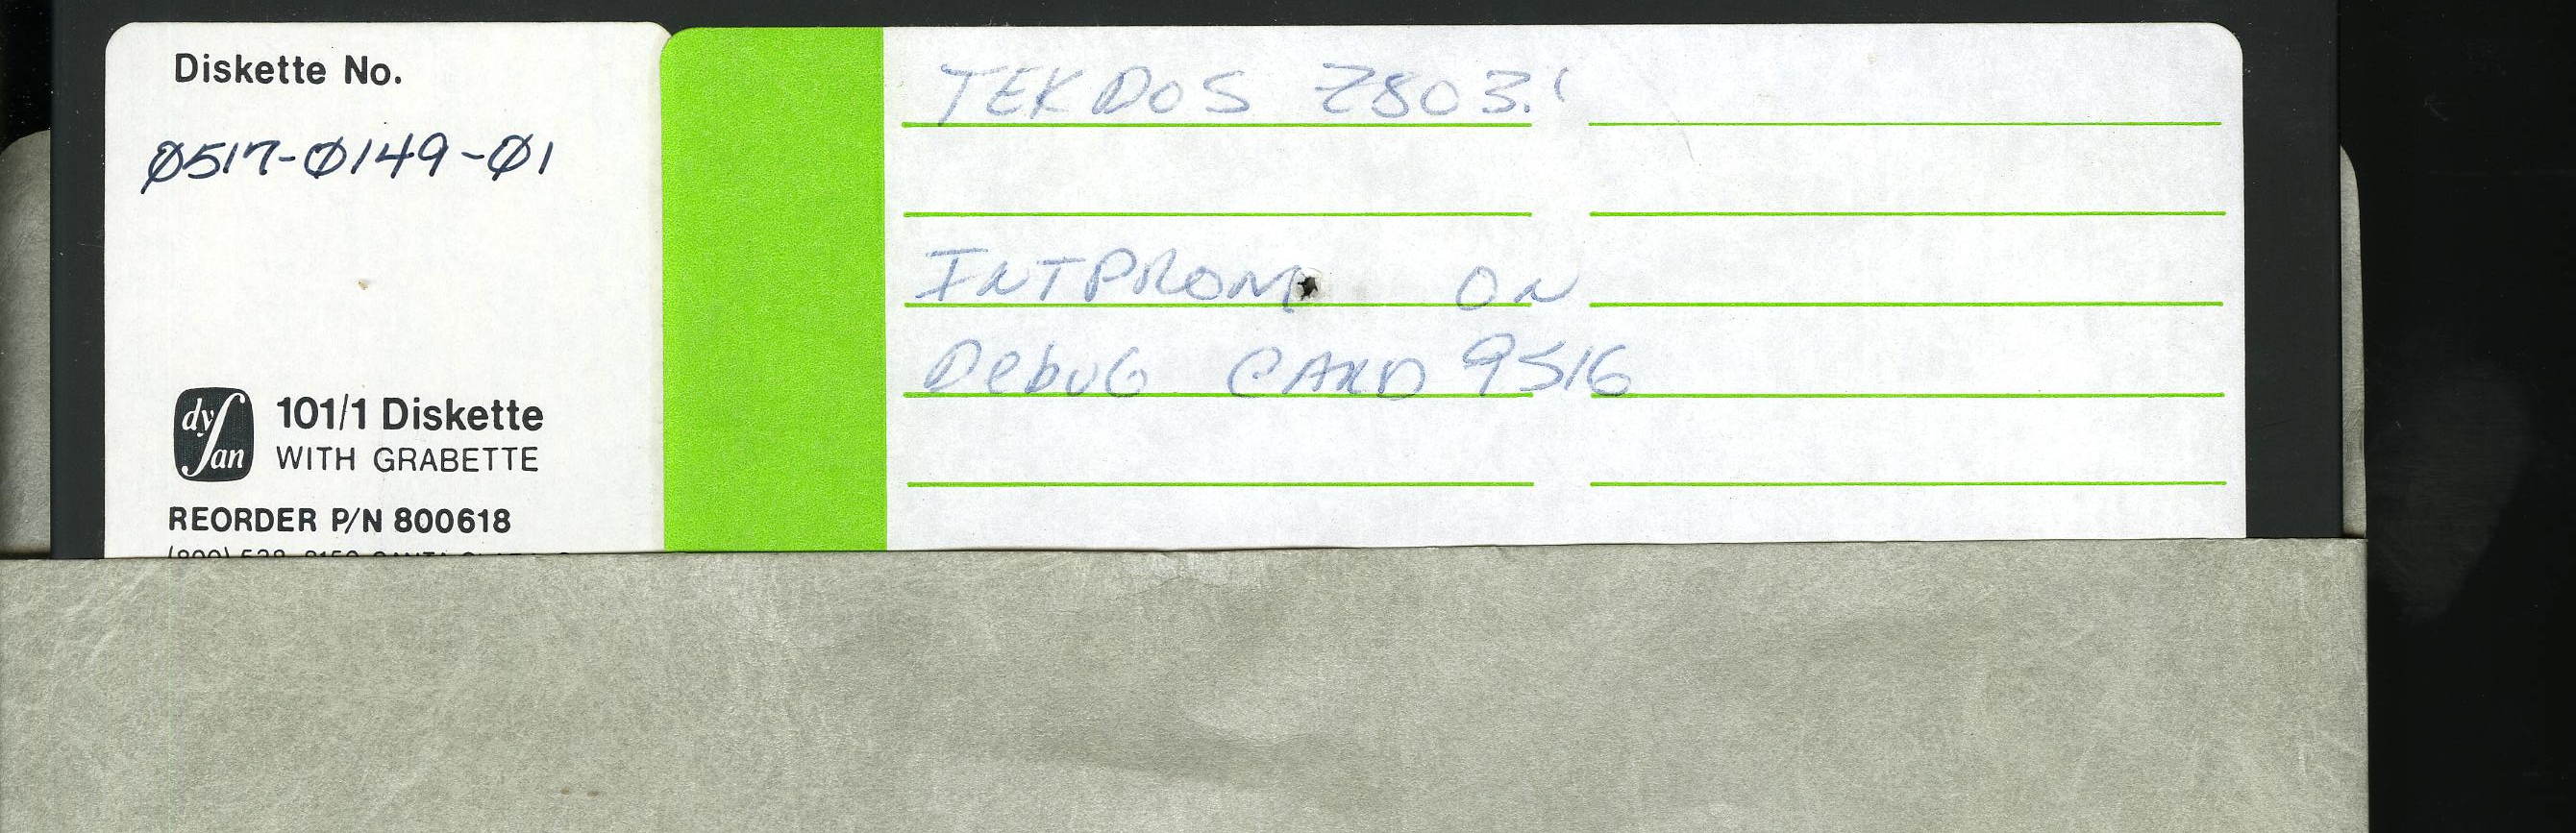 Diskette No.
Ø517-Ø149-Ø1
dysan
101/1 Diskette
WITH GRABETTE
REORDER P/N 800618
TEKDOS Z80 3.1
INTPROM ON
DEbUG CARD 9516